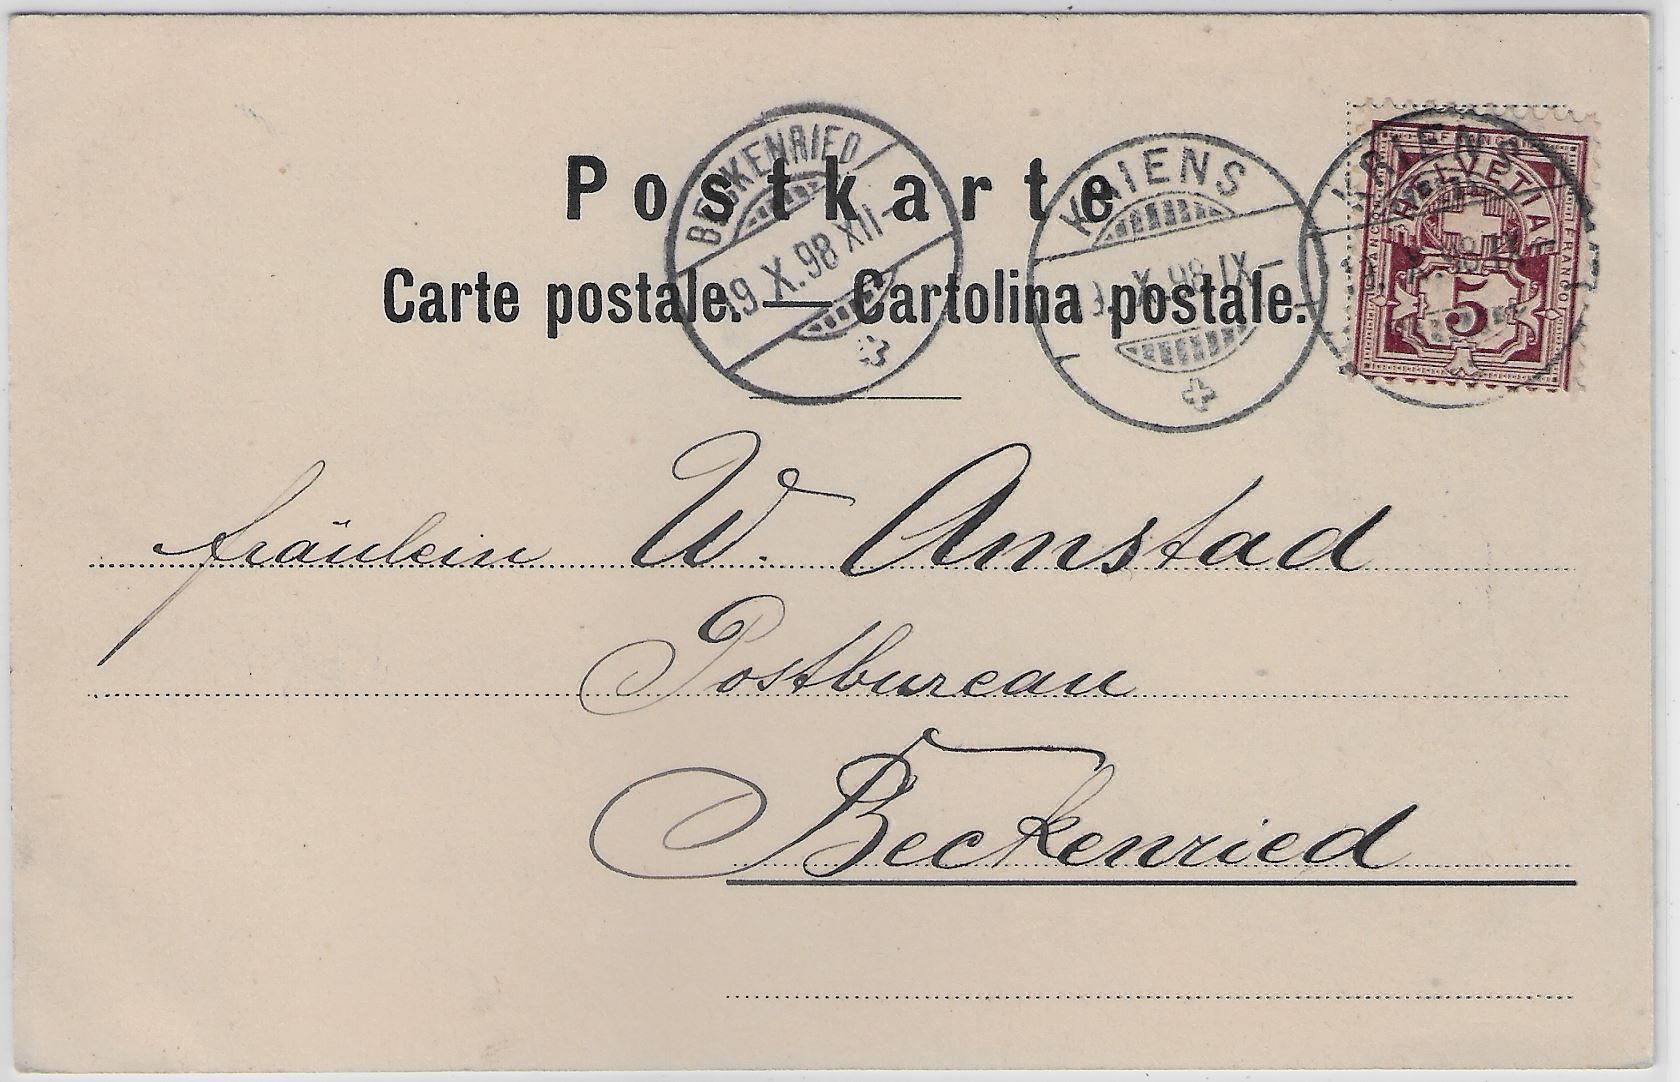 Postkarte
Carte postale. — Cartolina postale.
BECKENRIED
19. X. 98 XII –
KRIENS
X. 98. IX –
KRIENS
HELVETIA
FRANCO
FRANCO
5
Fräulein W. Amstad
Postbureau
Beckenried